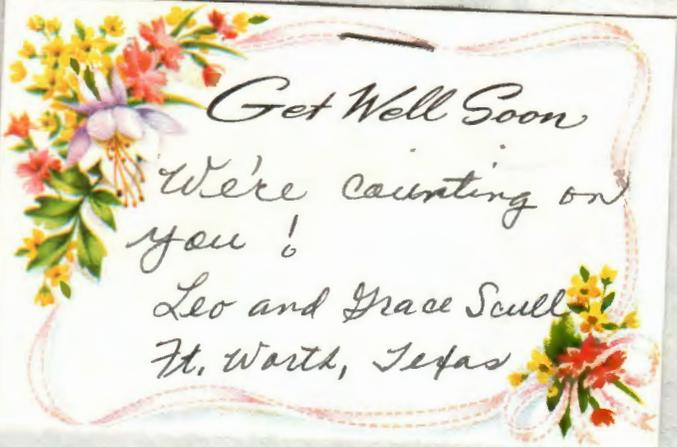 Get Well Soon
We're counting on
you !
Leo and Grace Scull
Ft. Worth, Texas